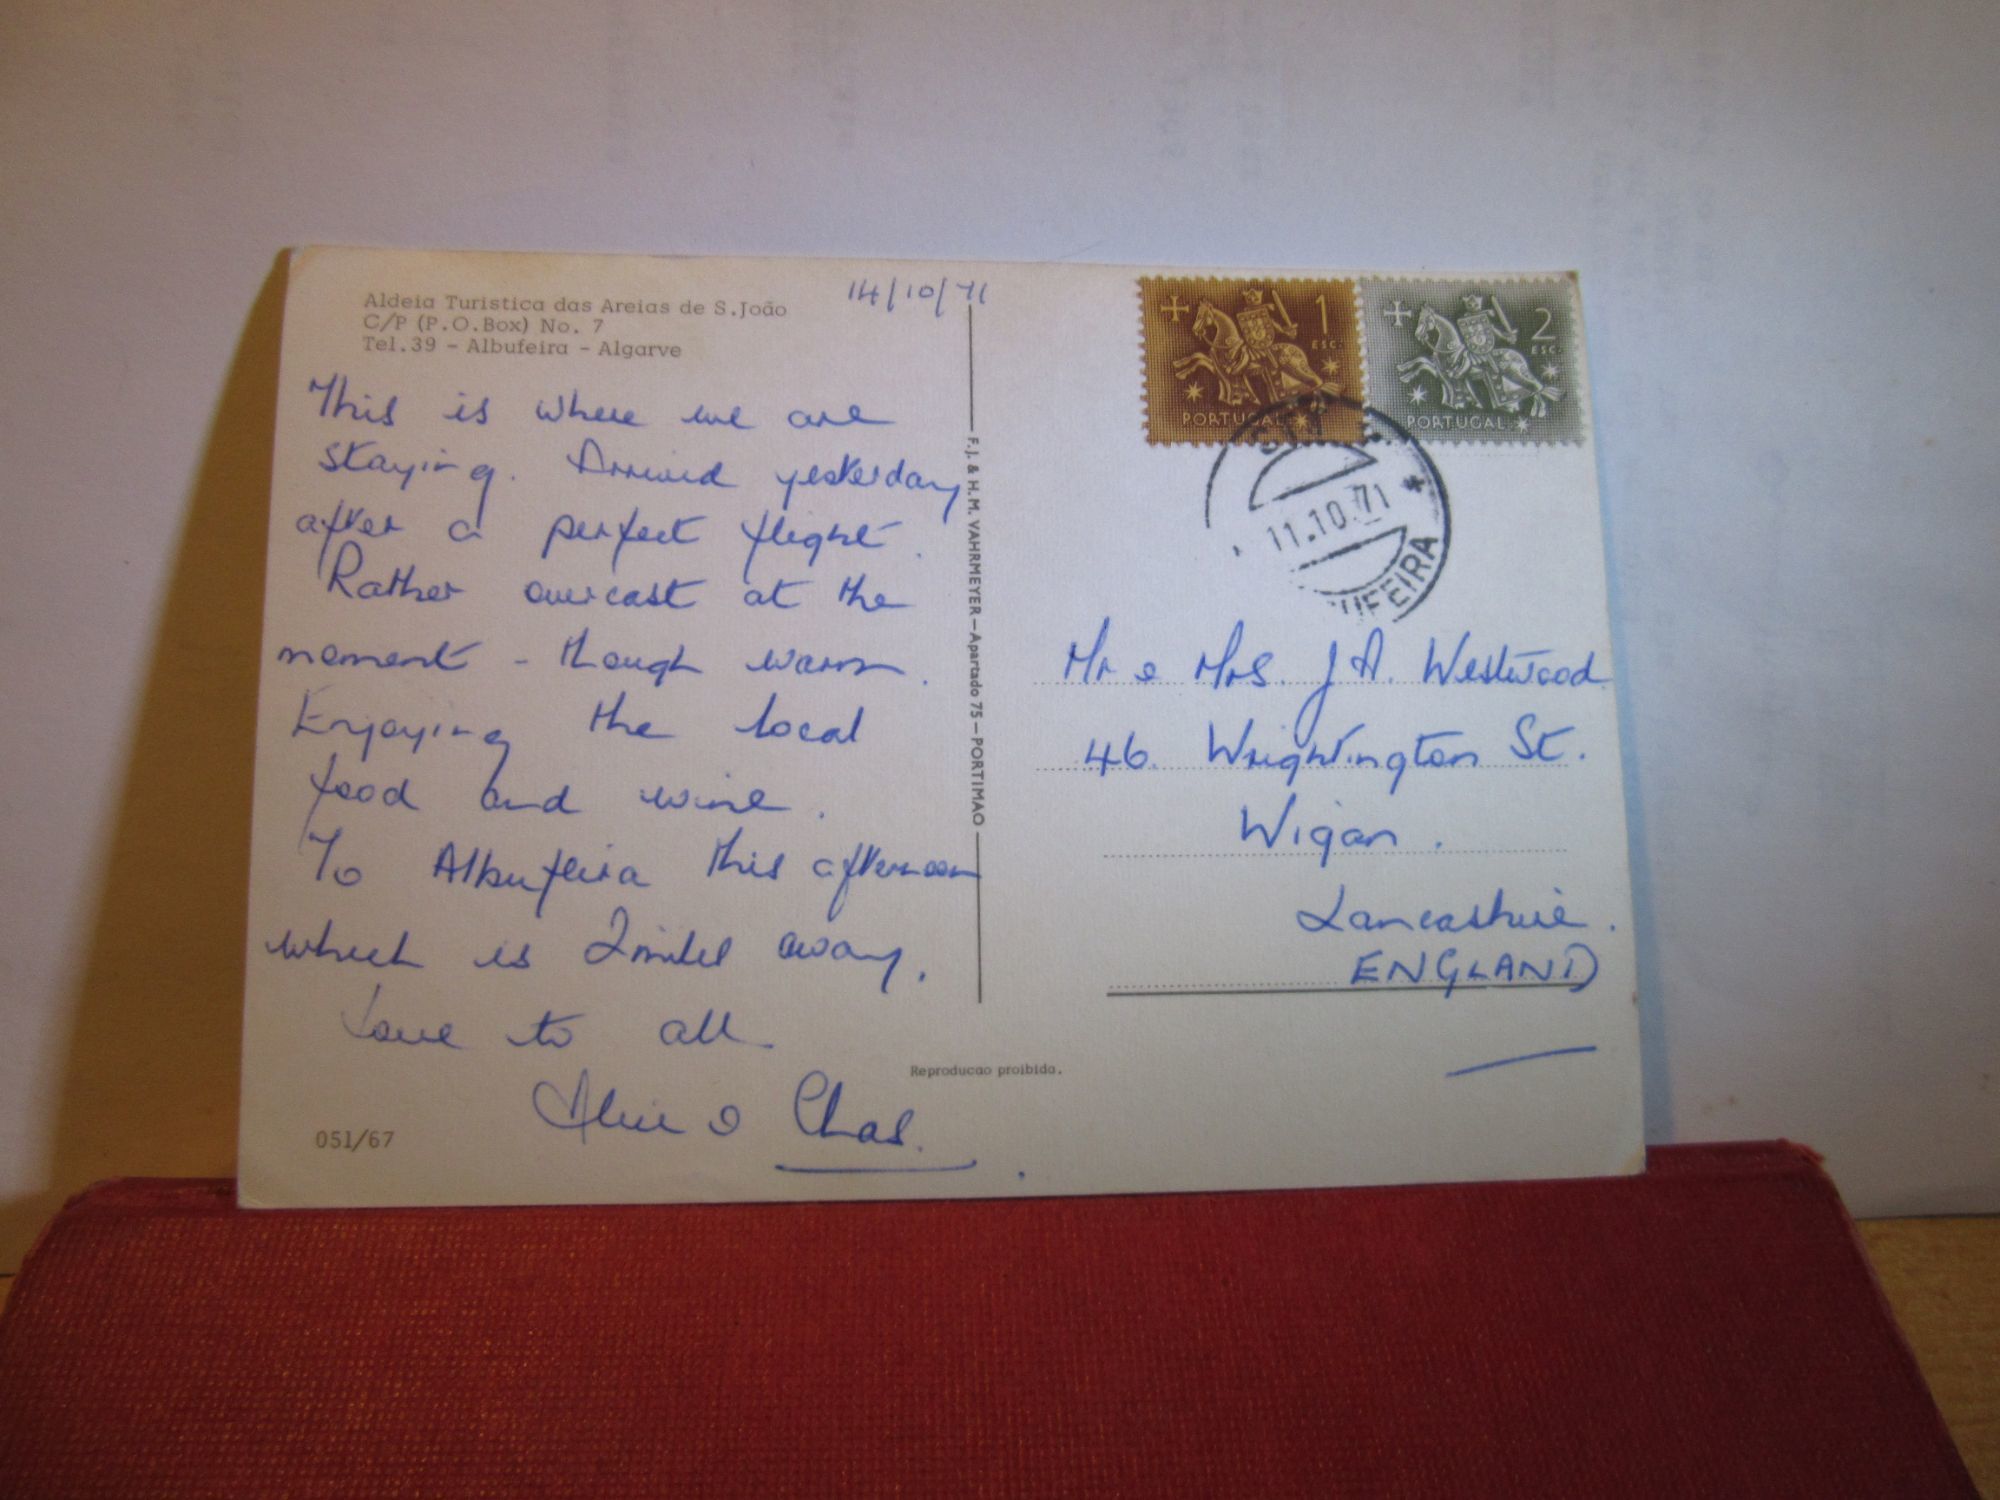 Aldeia Turistica das Areias de S.João
C/P (P.O.Box) No. 7
Tel.39 - Albufeira - Algarve
14/10/71
This is where we are
staying. Arrived yesterday
after a perfect flight.
Rather overcast at the
moment - though warm.
Enjoying the local
food and wine.
To Albufeira this afternoon
which is 2 miles away.
Love to all
& Chas.
051/67
F.J. & H.M. VAHRMEYER - Apartado 75 - PORTIMAO
Reproducao proibida.
1
ESC.
PORTUGAL
2
ESC.
PORTUGAL
11.10.71
UFEIRA
Mr & Mrs. J A. Westwood
46. Wrightington St.
Wigan.
Lancashire.
ENGLAND